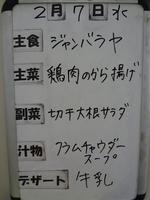 2月7日水
主食 ジャンバラヤ
主菜 鶏肉のから揚げ
副菜 切干大根サラダ
汁物 クラムチャウダー
スープ
デザート 牛乳